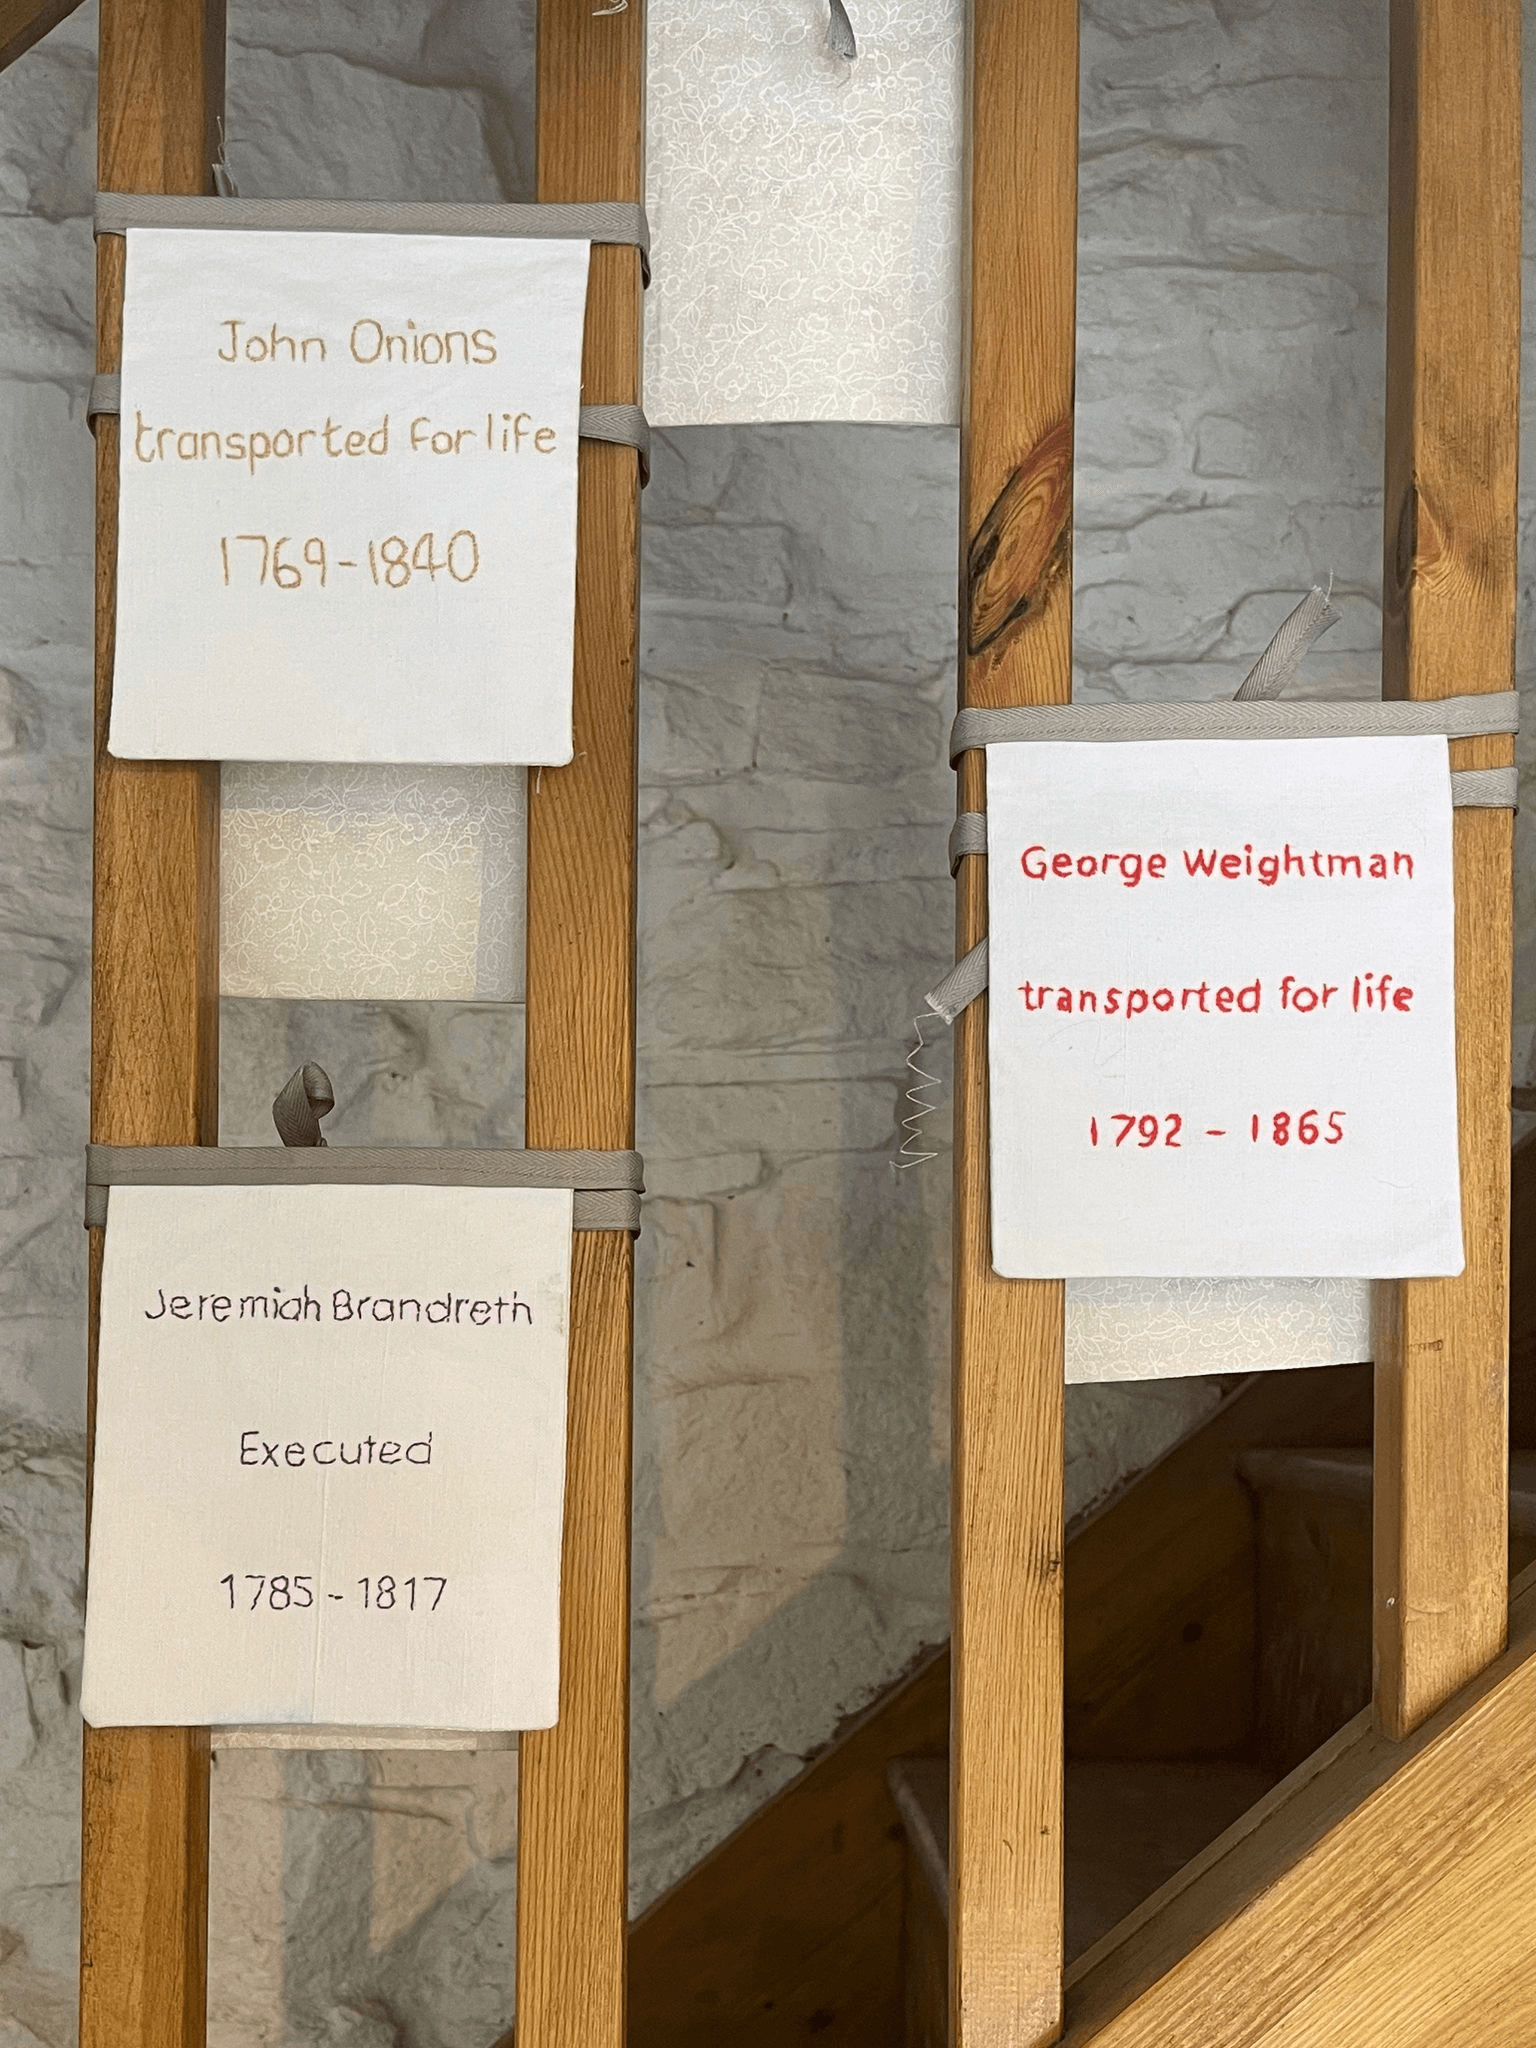 John Onions
transported for life
1769-1840
George Weightman
transported for life
1792 - 1865
Jeremiah Brandreth
Executed
1785-1817